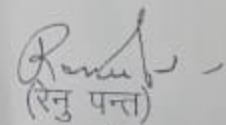 (रेनु पन्त)